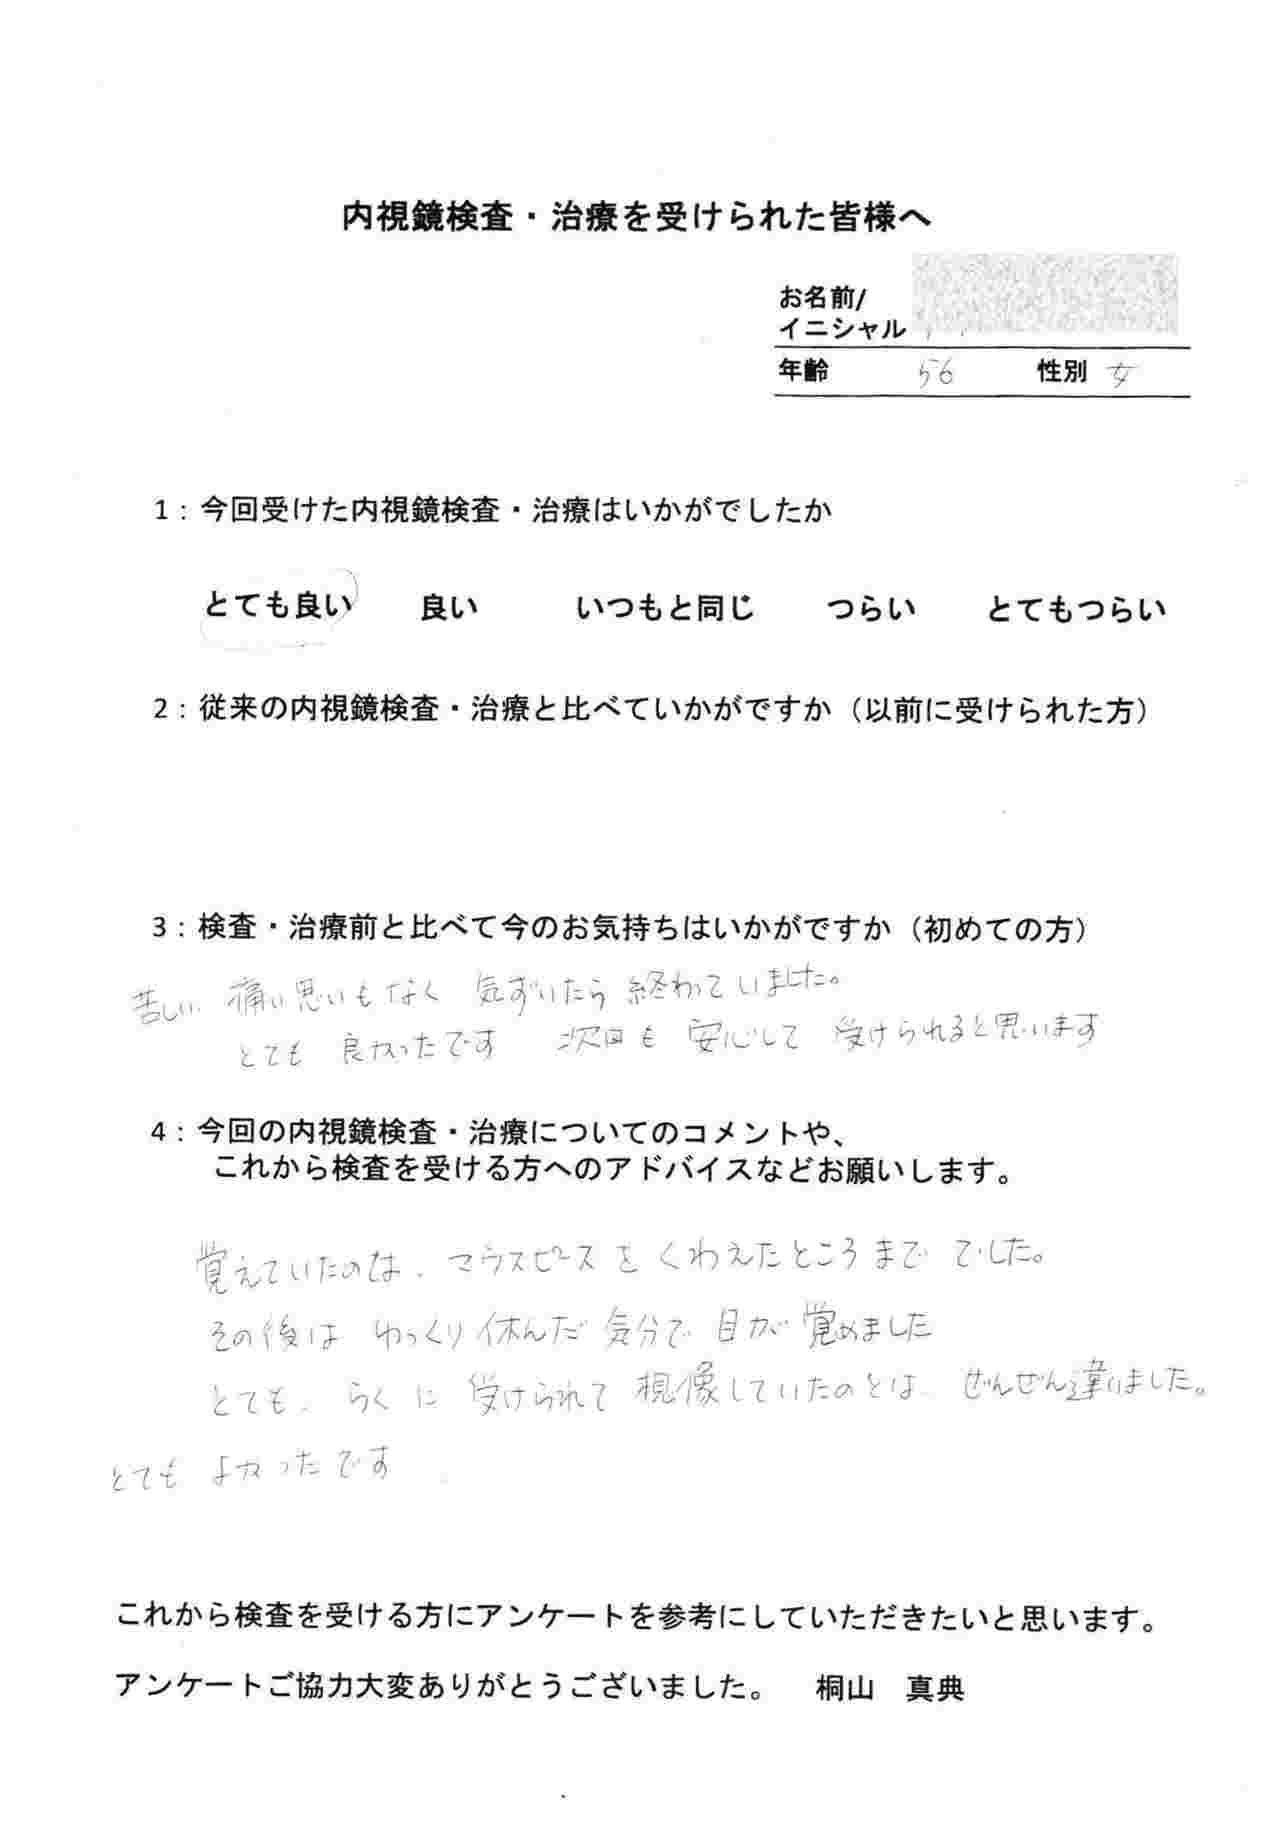 内視鏡検査・治療を受けられた皆様へ
お名前/
イニシャル
年齢 56 性別 女
1：今回受けた内視鏡検査・治療はいかがでしたか
とても良い 良い いつもと同じ つらい とてもつらい
2：従来の内視鏡検査・治療と比べていかがですか（以前に受けられた方）
3：検査・治療前と比べて今のお気持ちはいかがですか（初めての方）
苦しい、痛い思いもなく 気ずいたら 終わっていました。
とても 良かったです 次回も 安心して 受けられると思います
4：今回の内視鏡検査・治療についてのコメントや、
これから検査を受ける方へのアドバイスなどお願いします。
覚えていたのは、マウスピースを くわえたところまで でした。
その後は ゆっくり休んだ 気分で 目が 覚めました
とても、らくに 受けられて 想像していたのとは、ぜんぜん違いました。
とても よかったです
これから検査を受ける方にアンケートを参考にしていただきたいと思います。
アンケートご協力大変ありがとうございました。 桐山 真典